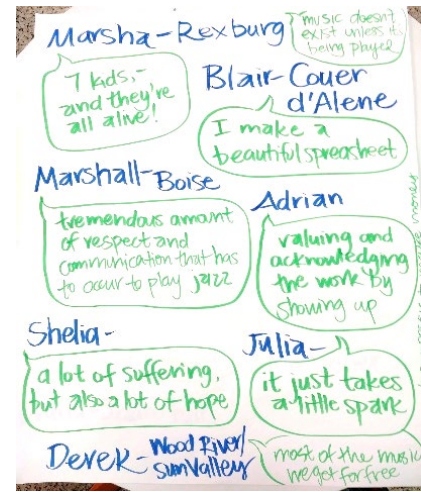 Marsha - Rexburg
music doesn't
exist unless it's
being played
7 kids,-
and they're
all alive!
Blair - Couer
d'Alene
I make a
beautiful spreasheet
Marshall - Boise
tremendous amount
of respect and
communication that has
to occur to play jazz
Adrian
valuing and
acknowledging
the work by
showing up
Shelia -
a lot of suffering,
but also a lot of hope
Julia -
it just takes
a little spark
Derek - Wood River/
Sun Valley
most of the music
we get for free
money